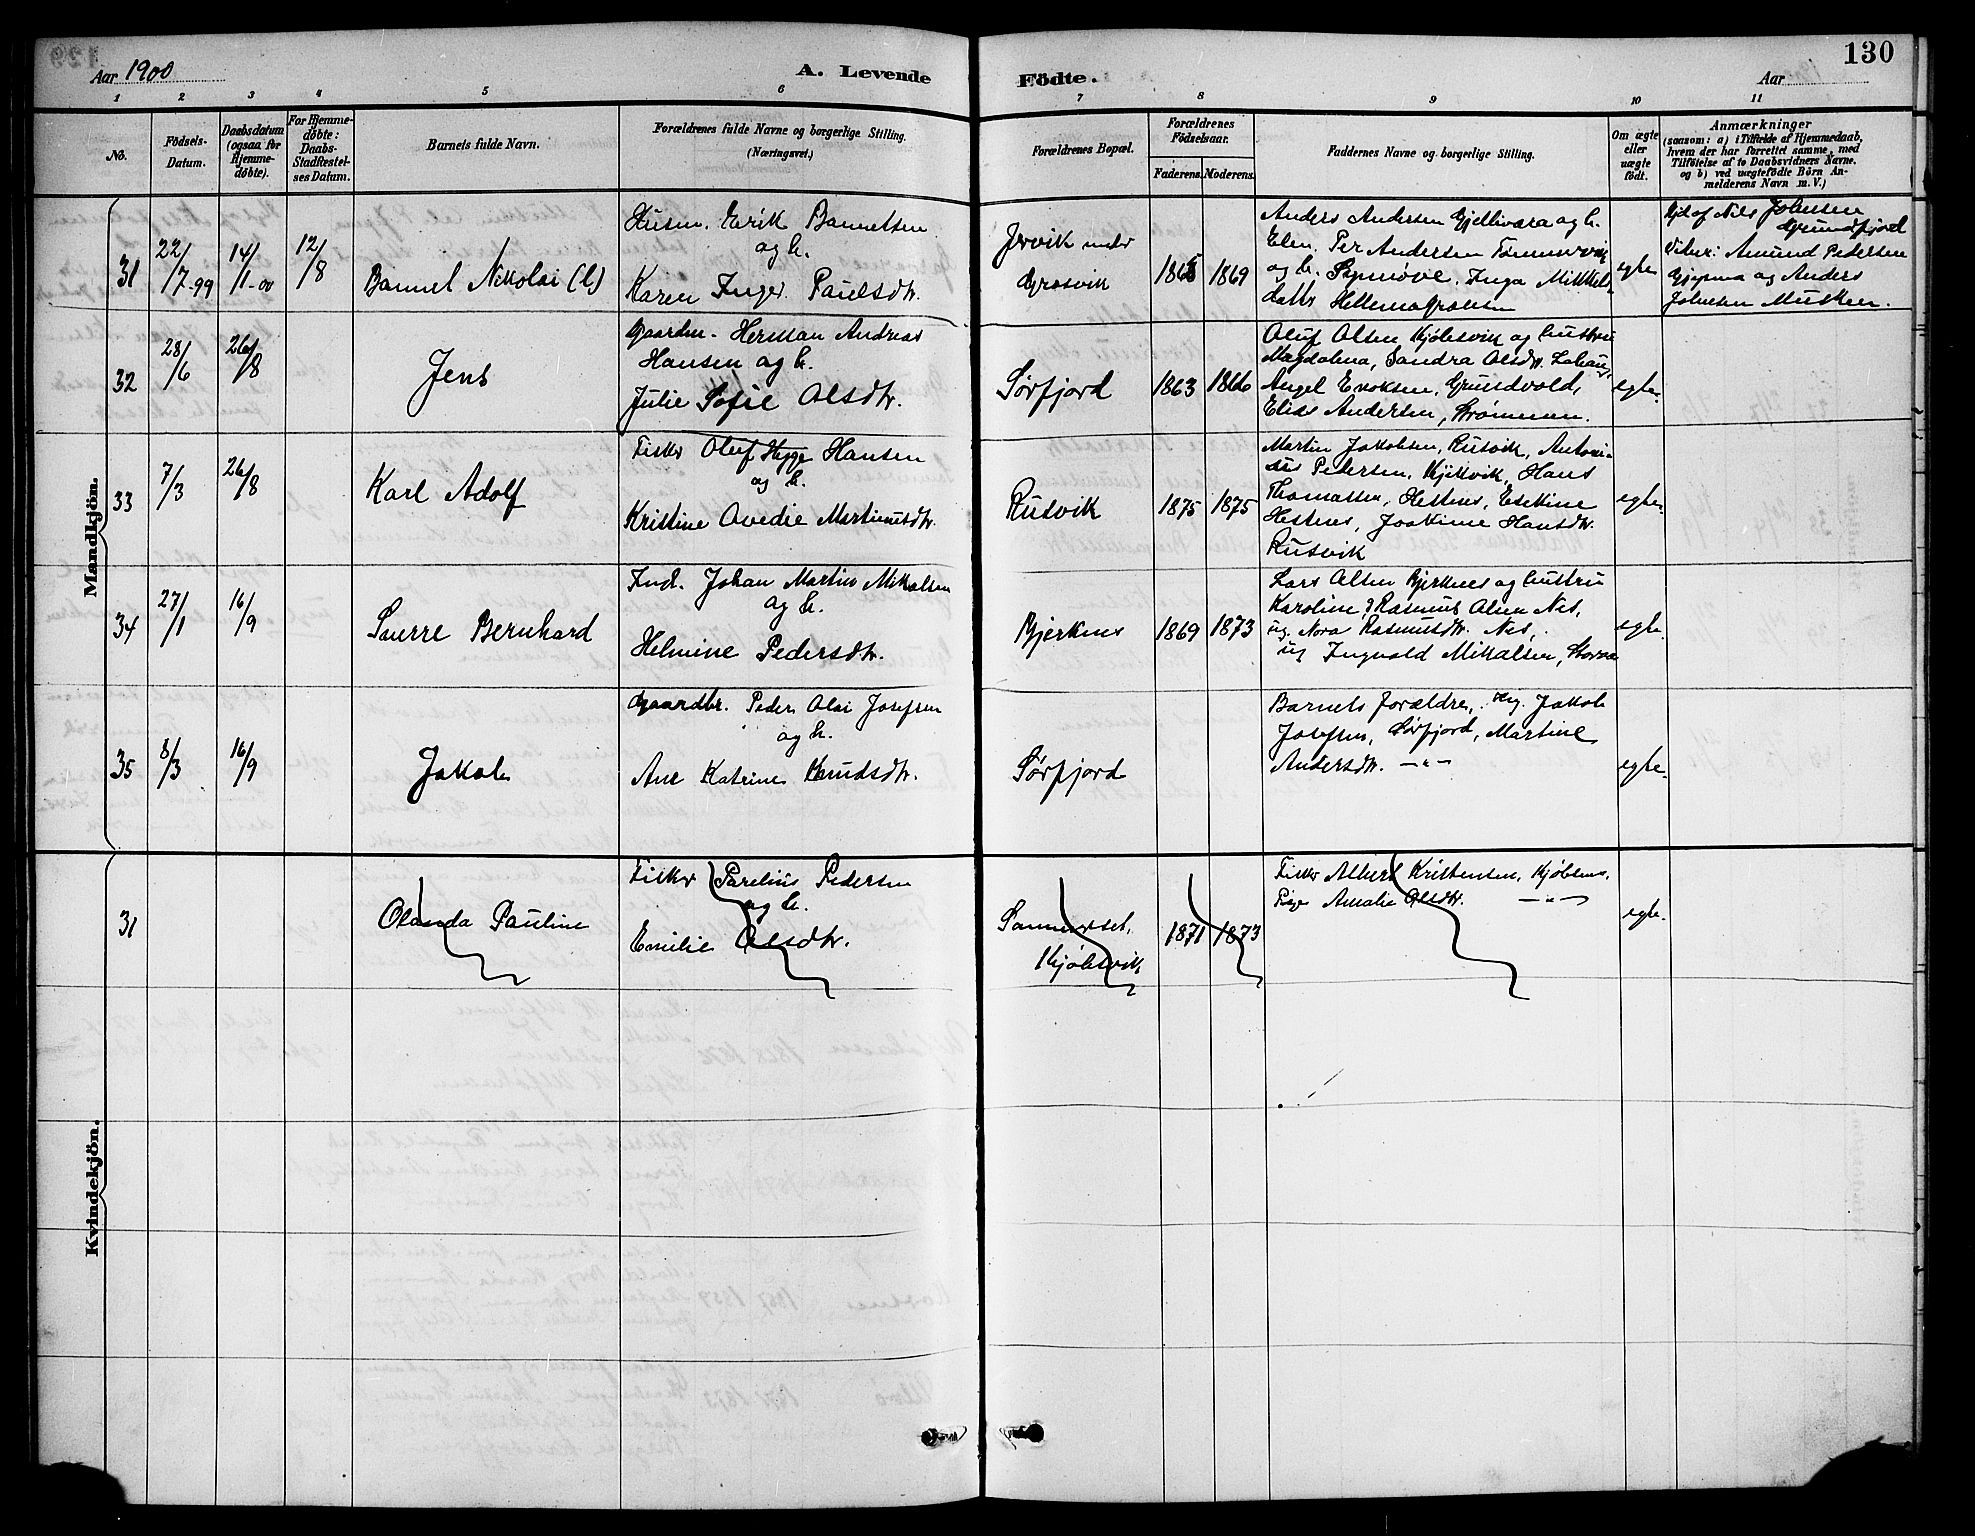 129
Aar 1900
A. Levende Födte.
Aar
130
1 2 3 4 5 6 7 8 9 10 11
No.
Födsels-
Datum.
Daabsdatum
(ogsaa for
Hjemme-
döbte).
For Hjemme-
döbte:
Daabs-
Stadfæstel-
ses Datum.
Barnets fulde Navn.
Forældrenes fulde Navne og borgerlige Stilling.
(Næringsvei.)
Forældrenes Bopæl.
Forældrenes
Födselsaar.
Faderens. Moderens.
Faddernes Navne og borgerlige Stilling.
Om ægte
eller
uægte
födt.
Anmærkninger
(saasom: a) i Tilfælde af Hjemmedaab,
hvem der har forrettet samme, med
Tilföielse af to Daabsvidners Navne,
og b) ved uægtefödte Börn An-
melderens Navn m. V.)
Mandkjön.
31
22/7-99
14/1-00
12/8
Bannel Nikolai (l)
Husm. Erik Bannelsen
og h.
Karen Inger Paulsdtr.
Jervik under
Græsvik
1865 1869
Anders Andersen Gjellivara og h.
Elen, Per Andersen Tømmervik
og h. Synnøve, Inga Mikkels-
dattr
egte
Hjd. af Nils Johnsen
Grundfjord
Amund Pedersen
og Anders
Johnsen Musken.
32
28/6
26/8
Jens
Gaardm. Herman Andreas
Hansen og h.
Julie Sofie Olsdtr.
Sørfjord
1863 1866
Oluf Olsen Kjøbsvik og hustru
Magdalena, Sandra Olsdtr.
Angel Enoksen, Grundvold,
Elias Andersen, Strømmen.
egte.
33
7/3
26/8
Karl Adolf
Fisker Oluf Hygge Hansen
og h.
Kristine Ovedie Martinusdtr.
Rusvik
1875 1875
Martin Jakobsen, Rusvik, Antoni-
us Pedersen, Kjelvik, Hans
Thomassen, Hestnes, Esekine
Hestnes, Joakime Hansdtr.
Rusvik
egte.
34
27/1
16/9
Snerre Bernhard
Ind. Johan Martin Mikalsen
og h.
Helmine Pedersdtr.
Bjerknes
1869 1873
Lars Olsen Bjerknes og hustru
Karoline, Rasmus Olsen Nes,
ug. Nora Rasmusdtr. Nes,
ug Ingvald Mikalsen,
egte.
35
8/3
16/9
Jakob
Gaardbr. Peder Olai Josefsen
og h.
Ane Katrine Knudsdtr.
Sørfjord
Barnets forældre, Ug. Jakob
Josefsen, Sørfjord, Martine
Andersdtr. —"—
egte.
Kvindekjön.
31
Olanda Pauline
Fisker Parelius Pedersen
og h.
Emilie Olsdtr.
Sommerset,
Kjøbsvik
1871 1873
Fisker Albert Kristensen, Kjøbsnes,
Pige Amalie Olsdtr. —"—
egte.